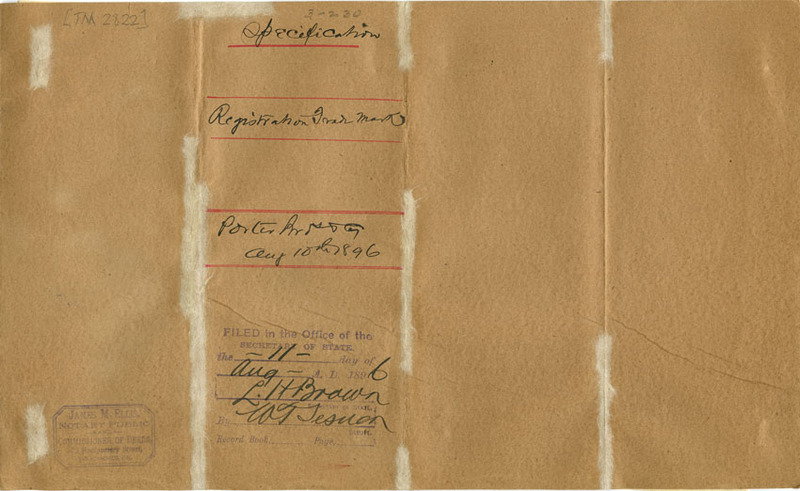 [TM 2822]
3-230
Specification
Registration Trade Mark
Porter Bros & Co
Aug 10th 1896
FILED in the Office of the
SECRETARY OF STATE
the -11- day of
Aug - A. D. 1896
L. H Brown
By W T Sesnon
Record Book Page
JAMES M. ELLIS,
NOTARY PUBLIC
COMMISSIONER OF DEEDS
Montgomery Street,